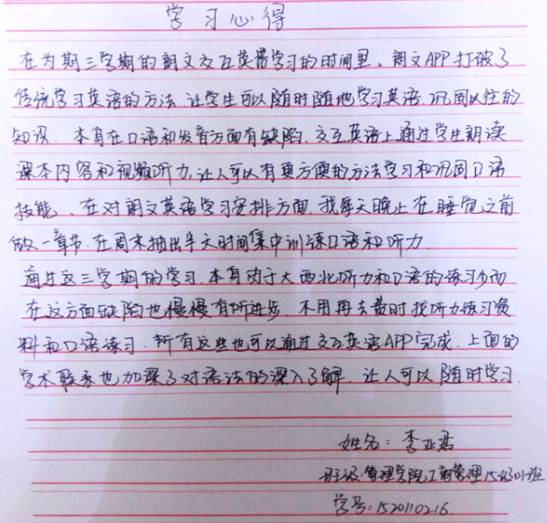 学习心得
在为期三学期的朗文交互英语学习的时间里，朗文APP打破了
传统学习英语的方法，让学生可以随时随地学习英语，巩固以往的
知识。本身在口语和发音方面有缺陷，交互英语上通过学生朗读
课本内容和视频听力，让人可以有更方便的方法学习和巩固口语
技能。在对朗文英语学习安排方面，我每天晚上在睡觉之前
做一章节，在周末抽出半天时间集中训练口语和听力。
通过这三学期的学习，本身由于大西北听力和口语的练习少而
在这方面缺陷也慢慢有所进步，不用再去费时找听力练习资
料和口语练习，所有这些也可以通过交互英语APP完成，上面的
学术联系也加深了对语法的深入了解，让人可以随时学习。
姓名：李亚君
班级：管理学院工商管理15级01班
学号：1520110216